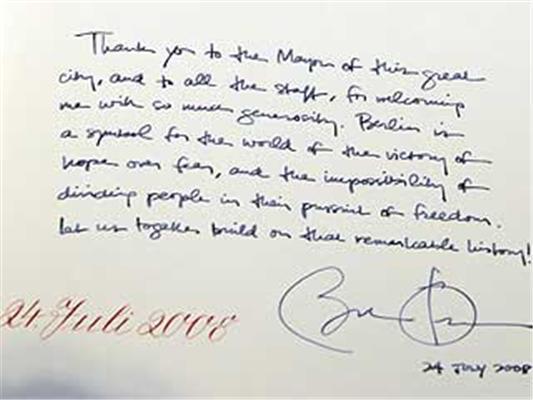 Thank you to the Mayor of this great
city, and to all the staff, for welcoming
me with so much generosity. Berlin is
a symbol for the world of the victory of
hope over fear, and the impossibility of
dividing people in their pursuit of freedom.
Let us together build on that remarkable history!
24. Juli 2008
24 July 2008